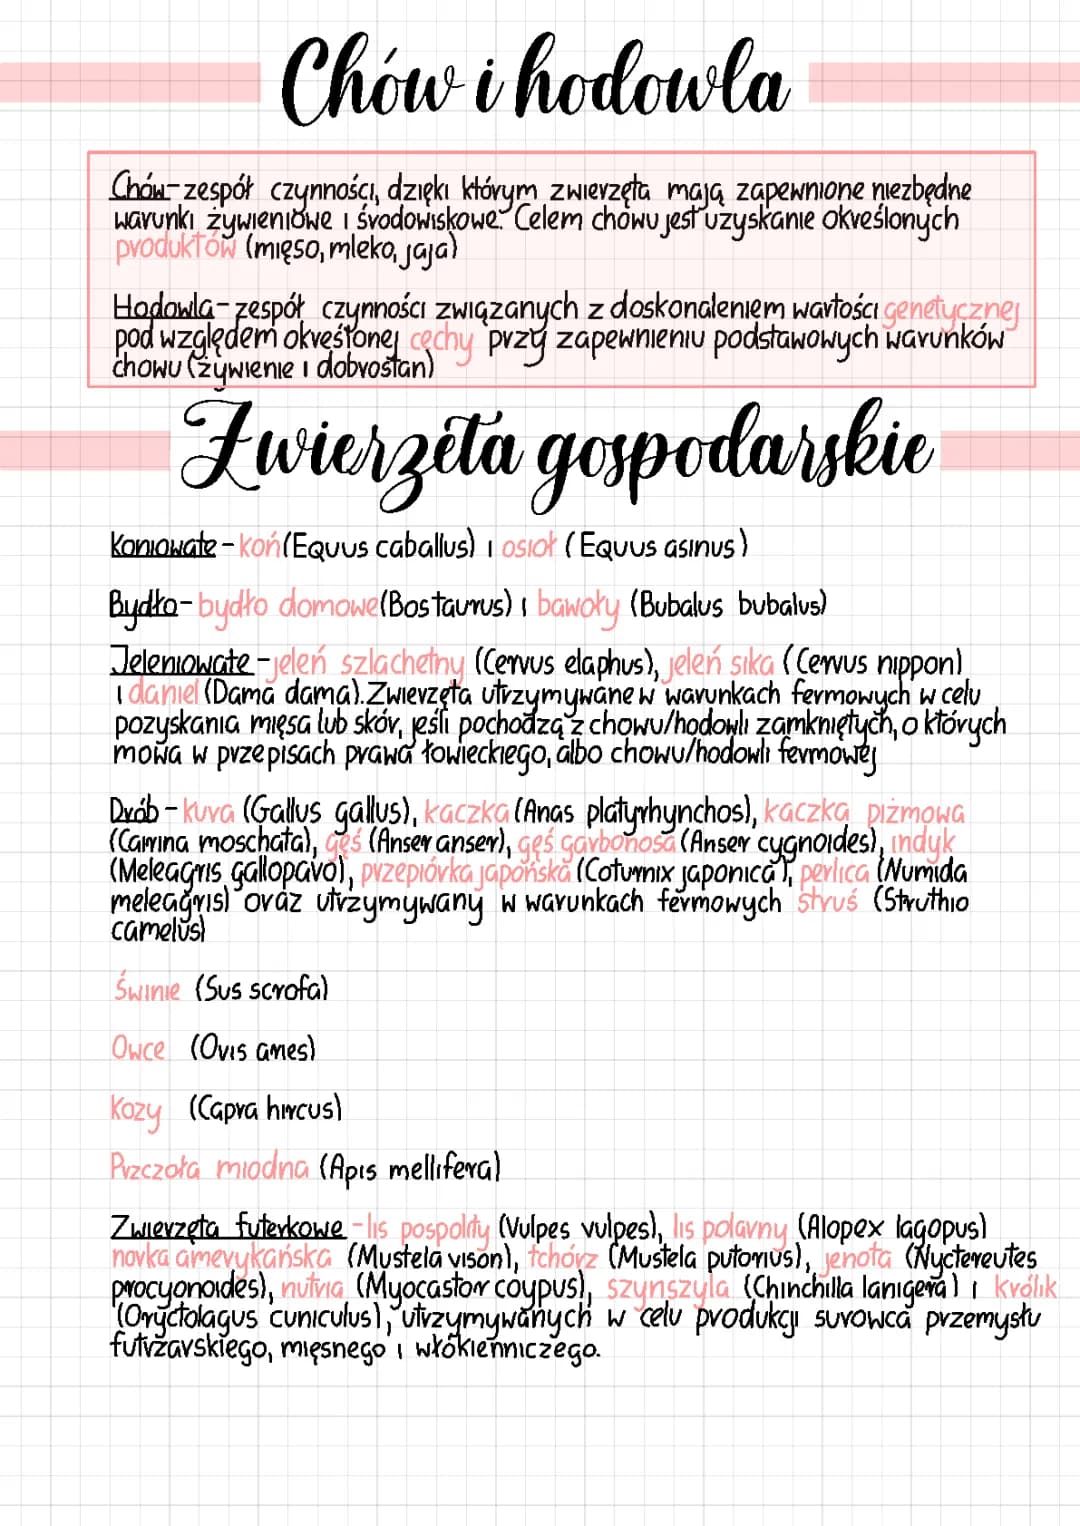 Chów i hodowla
Chów-zespół czynności, dzięki którym zwierzęta mają zapewnione niezbędne
warunki żywieniowe i środowiskowe. Celem chowu jest uzyskanie określonych
produktów (mięso, mleko, jaja)
Hodowla-zespół czynności związanych z doskonaleniem wartości genetycznej
pod względem określonej cechy przy zapewnieniu podstawowych warunków
chowu (żywienie i dobrostan)
Zwierzęta gospodarskie
Koniowate - koń (Equus caballus) i osioł (Equus asinus)
Bydło- bydło domowe (Bos taurus) i bawoły (Bubalus bubalus)
Jeleniowate -jeleń szlachetny (Cervus elaphus), jeleń sika (Cervus nippon)
i daniel (Dama dama). Zwierzęta utrzymywane w warunkach fermowych w celu
pozyskania mięsa lub skór, jeśli pochodzą z chowu/hodowli zamkniętych, o których
mowa w przepisach prawa łowieckiego, albo chowu/hodowli fermowej
Drób - kura (Gallus gallus), kaczka (Anas platyrhynchos), kaczka piżmowa
(Cairina moschata), gęś (Anser anser), gęś garbonosa (Anser cygnoides), indyk
(Meleagris gallopavo), przepiórka japońska (Coturnix japonica), perlica (Numida
meleagris) oraz utrzymywany w warunkach fermowych struś (Struthio
camelus)
Świnie (Sus scrofa)
Owce (Ovis aries)
Kozy (Capra hircus)
Przczoła miodna (Apis mellifera)
Zwierzęta futerkowe -lis pospolity (Vulpes vulpes), lis polarny (Alopex lagopus)
norka amerykańska (Mustela vison), tchórz (Mustela putorius), jenota (Nyctereutes
procyonoides), nutria (Myocastor coypus), szynszyla (Chinchilla lanigera) i królik
(Oryctolagus cuniculus), utrzymywanych w celu produkcji surowca przemysłu
futrzarskiego, mięsnego i włókienniczego.